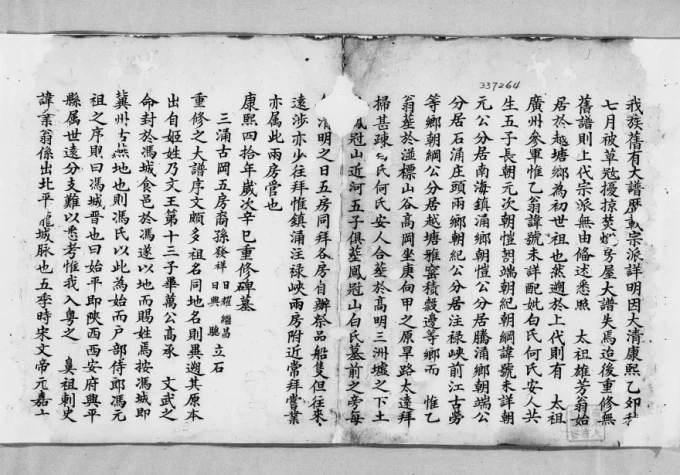 237264
我族舊有大譜歷載宗派詳明因大清康熙乙卯
七月被草冠擾掠焚燬房屋大譜失焉迨後重修無
舊譜則上代宗派無由備述悉照 太祖雄芳翁始
居於越塘鄉為初世祖也然遡於上代則有 太祖
廣州參軍惟乙翁諱號未詳配妣白氏何氏安人共
生五子長朝元次朝愷朝端朝紀朝綱諱號未詳朝
元公分居南海鎮涌鄉朝愷公分居騰涌鄉朝端公
分居石涌庄頭兩鄉朝紀公分居注禄峽前江古勞
等鄉朝綱公分居越塘雅窰積殼邊等鄉而 惟乙
翁塟於滥標山谷高岡坐庚向甲之原旱路太遠拜
掃甚疎 氏何氏安人合塟於高明三洲墟之下土
鳳冠山近河五子俱塟鳳冠山白氏墓前之旁每
清明之日五房同拜各房自辦祭品船隻但往來
遠涉亦少往拜惟鎮涌注禄峽兩房附近常拜嘗業
亦属此兩房管也
康熙四拾年歲次辛巳重修碑墓
三涌古岡五房裔孫發祥 日耀 繼昌 日興 聰 立石
重修之大譜序文頗多祖名同地名則異遡其原本
出自姬姓乃文王第十三子畢萬公高承 文武之
命封於馮城食邑於馮遂以地而賜姓焉按馮城即
冀州古燕地也則馮氏以此為始而户部侍郎馮元
祖之序則曰馮城晋也曰始平即陝西西安府興平
縣属世遠分支難以悉考惟我入粤之 臭祖刺史
諱業翁係出北平龍城脉也五季時宋文帝元嘉十